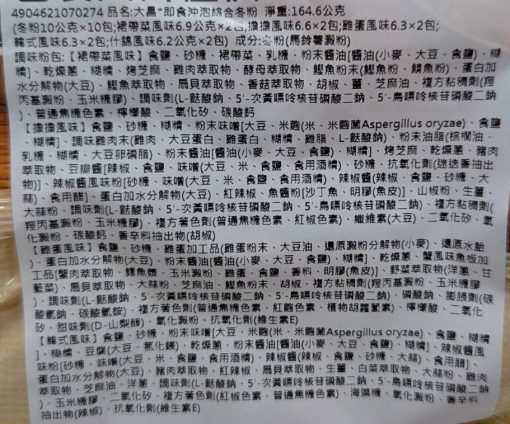 4904621070274 品名:大昌*即食沖泡綜合冬粉 淨重:164.6公克
(冬粉10公克×10包;裙帶菜風味6.9公克×2包;擔擔風味6.6×2包;雞蛋風味6.3×2包;
韓式風味6.3×2包;什錦風味6.2公克×2包) 成分:冬粉(馬鈴薯澱粉)
調味粉包:【裙帶菜風味】食鹽、砂糖、裙帶菜、乳糖、粉末醬油[醬油(小麥、大豆、食鹽)、糊
精]、乾燥蔥、糊精、烤芝麻、雞肉萃取物、酵母萃取物、鰹魚粉末(鰹魚粉、鯖魚粉)、蛋白加
水分解物(大豆)、鰹魚萃取物、扇貝萃取物、香菇萃取物、胡椒、薑、芝麻油、複方粘稠劑(羥
丙基澱粉、玉米糖膠)、調味劑(L-麩酸鈉、5'-次黃嘌呤核苷磷酸二鈉、5'-鳥嘌呤核苷磷酸二鈉)
、普通焦糖色素、檸檬酸、二氧化矽、碳酸鈣
【擔擔風味】食鹽、砂糖、糊精、粉末味噌(大豆、米麴(米、米麴菌Aspergillus oryzae)、食鹽、糊
精]、調味雞肉末(雞肉、大豆蛋白、雞蛋白、糊精、雞脂、L-麩酸鈉)、粉末油脂(棕櫚油、
乳糖、糊精、大豆卵磷脂)、粉末醬油[醬油(小麥、大豆、食鹽)、糊精]、烤芝麻、乾燥蔥、豬肉
萃取物、豆瓣醬[辣椒、食鹽、味噌(大豆、米、食鹽、食用酒精)、砂糖、抗氧化劑(迷迭香抽出
物)]、辣椒醬風味粉[砂糖、味噌(大豆、米、食鹽、食用酒精)、糊精、辣椒醬(辣椒、食鹽、砂糖、大
蒜)、食用醋]、蛋白加水分解物(大豆)、紅辣椒、魚醬粉[沙丁魚、明膠(魚皮)]、山椒粉、生薑
、大蒜粉、調味劑(L-麩酸鈉、5'-次黃嘌呤核苷磷酸二鈉、5'-鳥嘌呤核苷磷酸二鈉)、複方粘稠劑(
羥丙基澱粉、玉米糖膠)、複方著色劑(普通焦糖色素、紅椒色素)、纖維素(大豆)、二氧化矽、氧
化澱粉、碳酸鈣、香辛料抽出物(胡椒)
【雞蛋風味】食鹽、砂糖、雞蛋加工品(雞蛋粉末、大豆油、還原澱粉分解物(小麥)、還原水飴
、蛋白加水分解物(大豆)、粉末醬油[醬油(小麥、大豆、食鹽)、糊精]、乾燥蔥、蟹風味魚板加
工品[蟹肉萃取物、鱈魚漿、玉米澱粉、雞蛋、食鹽、香料、明膠(魚皮)]、野菜萃取物(洋蔥、甘
藍菜)、扇貝萃取物、大蒜粉、芝麻油、鰹魚粉末、胡椒、複方粘稠劑(羥丙基澱粉、玉米糖膠
)、調味劑(L-麩酸鈉、5'-次黃嘌呤核苷磷酸二鈉、5'-鳥嘌呤核苷磷酸二鈉)、磷酸鈉、膨脹劑(碳
酸氫鈉、碳酸氫銨)、複方著色劑(普通焦糖色素、紅麴色素、植物胡蘿蔔素)、檸檬酸、二氧化
矽、甜味劑(D-山梨醇)、氧化澱粉、抗氧化劑(維生素E)
【韓式風味】食鹽、砂糖、粉末味噌(大豆、米麴(米、米麴菌Aspergillus oryzae)、食鹽、糊精]
、糊精、豆腐(大豆、氯化鎂)、乾燥蔥、粉末醬油[醬油(小麥、大豆、食鹽)、糊精]、辣椒醬風
味粉[砂糖、味噌(大豆、米、食鹽、食用酒精)、辣椒醬(辣椒、食鹽、砂糖、大蒜)、食用醋]、
蛋白加水分解物(大豆)、豬肉萃取物、紅辣椒、扇貝萃取物、生薑、白菜萃取物、大蒜粉、雞肉
萃取物、芝麻油、洋蔥、調味劑(L-麩酸鈉、5'-次黃嘌呤核苷磷酸二鈉、5'-鳥嘌呤核苷磷酸二鈉
)、玉米糖膠、二氧化矽、複方著色劑(紅椒色素、普通焦糖色素)、海藻糖、氧化澱粉、香辛料
抽出物(辣椒)、抗氧化劑(維生素E)